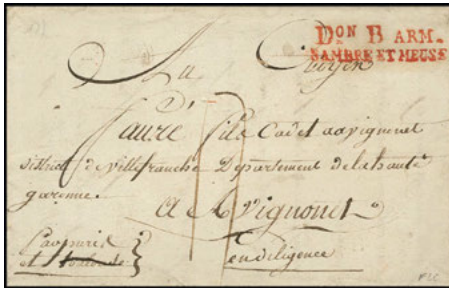 Don B ARM.
SAMBRE ET MEUSE
Au Citoyen
faure fils Cadet a avignonet
district de villefranche Departement de la haute
garonne.
a Avignonet
par paris
et Toulouse
en diligence